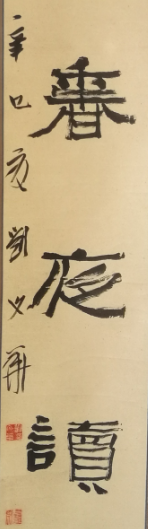 春夜讀
辛巳夏劉文華